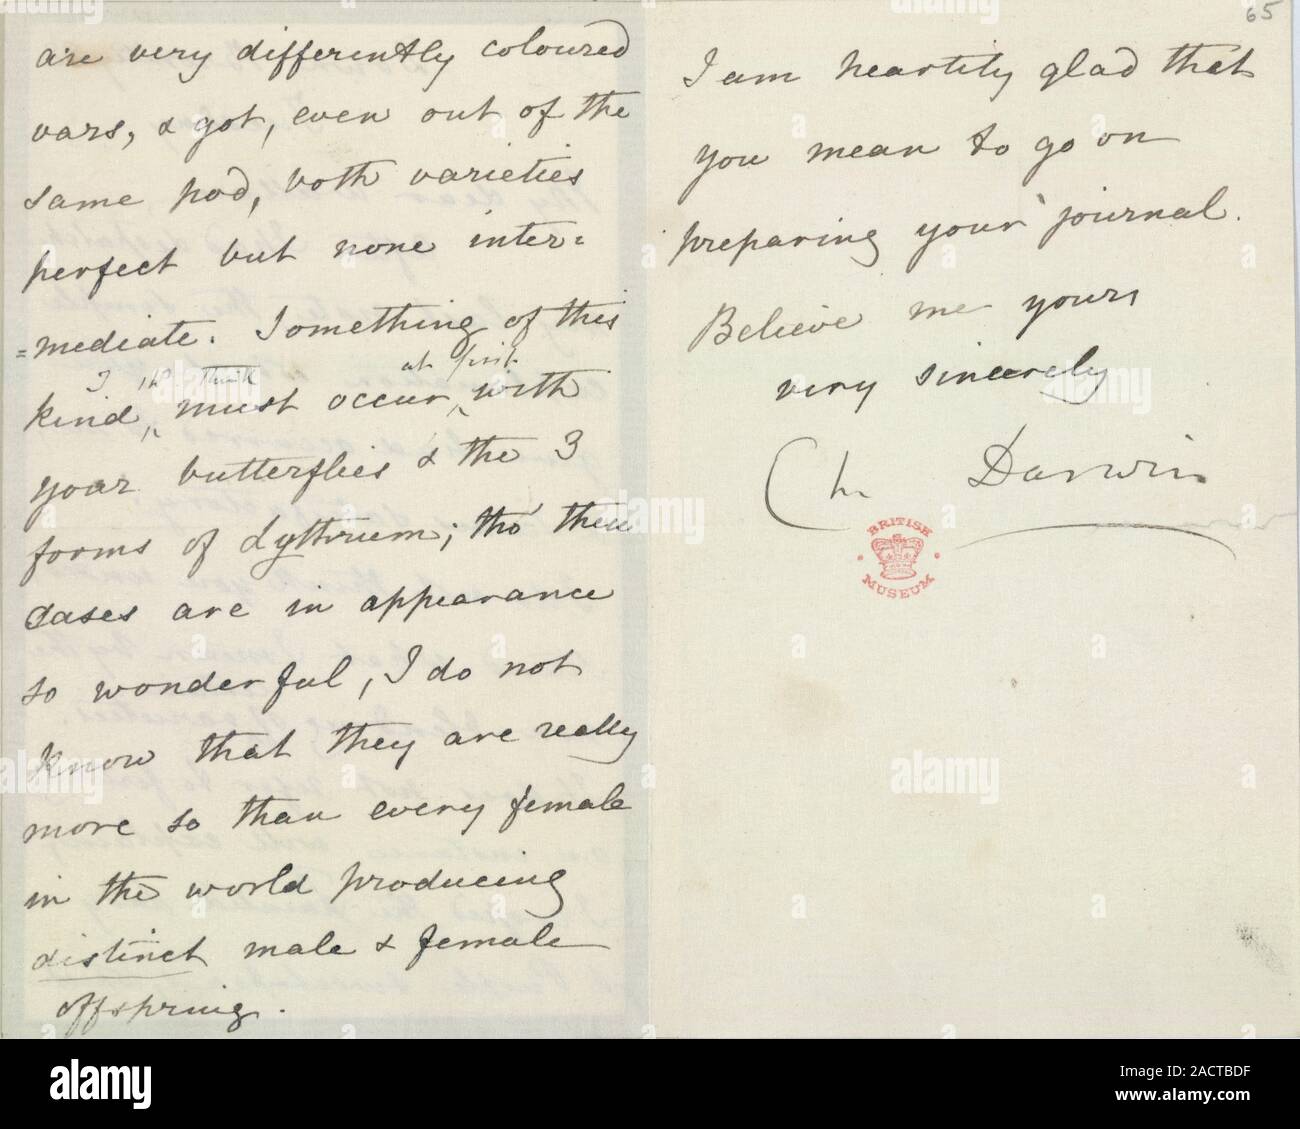 are very differently coloured
vars, & got, even out of the
same pod, both varieties
perfect but none inter=
=mediate. Something of this
I shd think at first
kind, must occur, with
your butterflies & the 3
forms of Lythrum; tho' these
cases are in appearance
so wonderful, I do not
know that they are really
more so than every female
in the world producing
distinct male & female
offspring.
65
I am heartily glad that
you mean to go on
preparing your journal.
Believe me yours
very sincerely
Ch. Darwin
BRITISH
MUSEUM
alamy
a
alamy
Image ID: 2ACTBDF
www.alamy.com